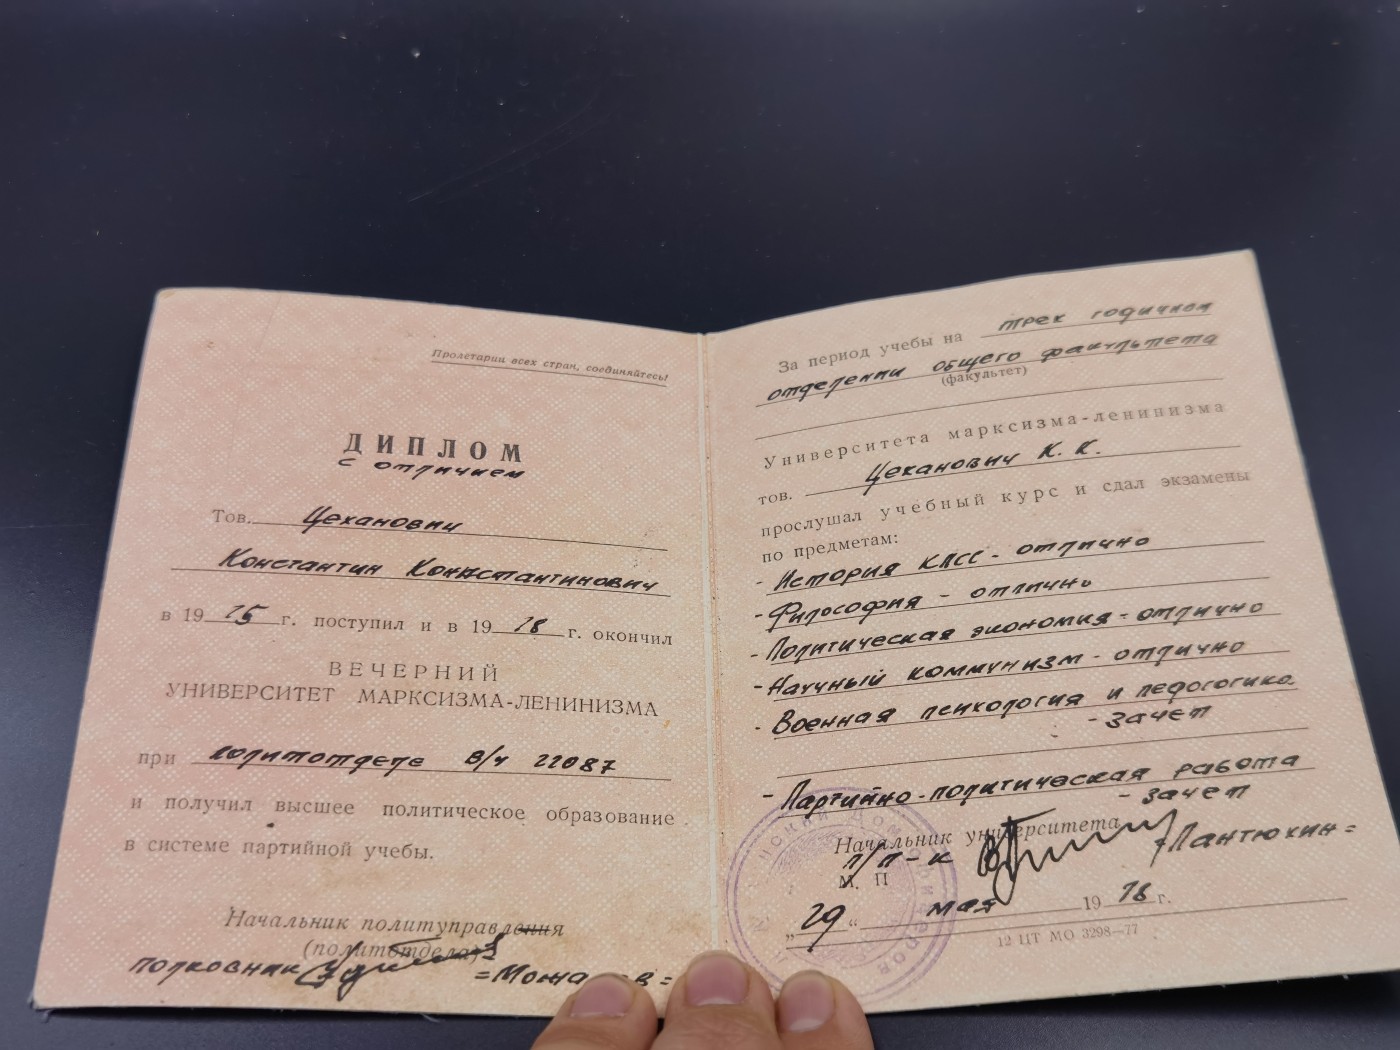 Пролетарии всех стран, соединяйтесь!
ДИПЛОМ
с отличием
Тов. Цеханович
Константин Константинович
в 1975 г. поступил и в 1978 г. окончил
ВЕЧЕРНИЙ
УНИВЕРСИТЕТ МАРКСИЗМА-ЛЕНИНИЗМА
при политотделе в/ч 22087
и получил высшее политическое образование
в системе партийной учебы.
Начальник политуправления
(политотдела)
полковник
За период учебы на трех годичном
отделении общего факультета
(факультет)
Университета марксизма-ленинизма
тов. Цеханович К. К.
прослушал учебный курс и сдал экзамены
по предметам:
- История КПСС - отлично
- Философия - отлично
- Политическая экономия - отлично
- Научный коммунизм - отлично
- Военная психология и педогогика
- зачет
- Партийно-политическая работа
- зачет
Начальник университета
п/п-к =Пантюхин=
М. П
„29“ мая 1978 г.
12 ЦТ МО 3298—77